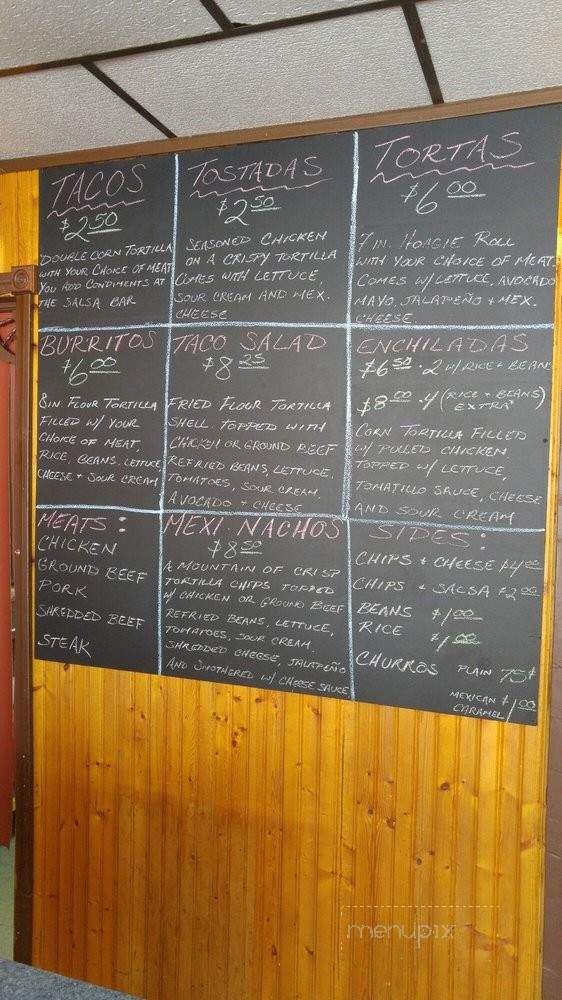 TACOS
$2.50
DOUBLE CORN TORTILLA
WITH YOUR CHOICE OF MEAT
YOU ADD CONDIMENTS AT
THE SALSA BAR
TOSTADAS
$2.50
SEASONED CHICKEN
ON A CRISPY TORTILLA
COMES WITH LETTUCE,
SOUR CREAM AND MEX.
CHEESE
TORTAS
$6.00
7 IN. HOAGIE ROLL
WITH YOUR CHOICE OF MEAT.
COMES W/ LETTUCE, AVOCADO
MAYO, JALAPEÑO + MEX.
CHEESE
BURRITOS
$6.00
8 IN. FLOUR TORTILLA
FILLED W/ YOUR
CHOICE OF MEAT,
RICE, BEANS, LETTUCE
CHEESE + SOUR CREAM
TACO SALAD
$8.25
FRIED FLOUR TORTILLA
SHELL TOPPED WITH
CHICKEN OR GROUND BEEF
REFRIED BEANS, LETTUCE,
TOMATOES, SOUR CREAM,
AVOCADO + CHEESE
ENCHILADAS
$6.50 · 2 W/ RICE + BEANS
$8.00 · 4 (RICE + BEANS)
EXTRA
CORN TORTILLA FILLED
W/ PULLED CHICKEN
TOPPED W/ LETTUCE,
TOMATILLO SAUCE, CHEESE
AND SOUR CREAM
MEATS:
CHICKEN
GROUND BEEF
PORK
SHREDDED BEEF
STEAK
MEXI NACHOS
$8.50
A MOUNTAIN OF CRISP
TORTILLA CHIPS TOPPED
W/ CHICKEN OR GROUND BEEF
REFRIED BEANS, LETTUCE,
TOMATOES, SOUR CREAM,
SHREDDED CHEESE, JALAPEÑO
AND SMOTHERED W/ CHEESE SAUCE
SIDES:
CHIPS + CHEESE $4.00
CHIPS + SALSA $2.00
BEANS $1.00
RICE $1.00
CHURROS PLAIN 75¢
MEXICAN $1.00
CARAMEL
menupix